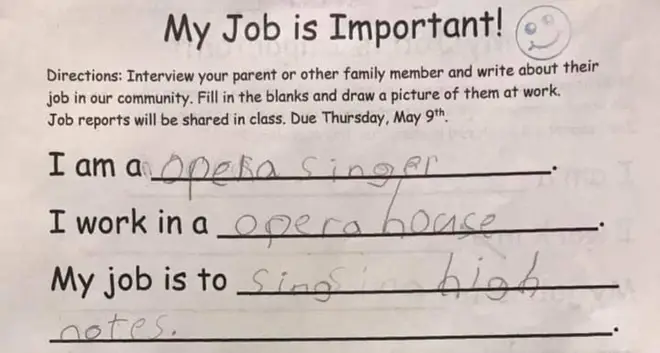 My Job is Important!
Directions: Interview your parent or other family member and write about their
job in our community. Fill in the blanks and draw a picture of them at work.
Job reports will be shared in class. Due Thursday, May 9th.
I am an opera singer.
I work in a opera house.
My job is to sing high
notes.